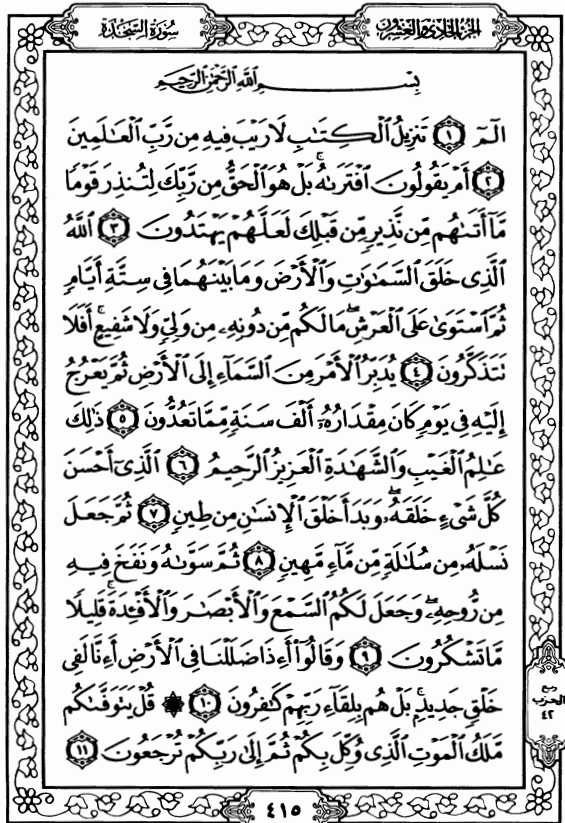 سُورَةُ السَّجْدَةِ
الجزء الحادي والعشرون
بِسْمِ اللَّهِ الرَّحْمَٰنِ الرَّحِيمِ
الٓمٓ ١ تَنزِيلُ ٱلْكِتَٰبِ لَا رَيْبَ فِيهِ مِن رَّبِّ ٱلْعَٰلَمِينَ
٢ أَمْ يَقُولُونَ ٱفْتَرَىٰهُ ۚ بَلْ هُوَ ٱلْحَقُّ مِن رَّبِّكَ لِتُنذِرَ قَوْمًا
مَّآ أَتَىٰهُم مِّن نَّذِيرٍ مِّن قَبْلِكَ لَعَلَّهُمْ يَهْتَدُونَ ٣ ٱللَّهُ
ٱلَّذِى خَلَقَ ٱلسَّمَٰوَٰتِ وَٱلْأَرْضَ وَمَا بَيْنَهُمَا فِى سِتَّةِ أَيَّامٍ
ثُمَّ ٱسْتَوَىٰ عَلَى ٱلْعَرْشِ ۖ مَا لَكُم مِّن دُونِهِۦ مِن وَلِىٍّ وَلَا شَفِيعٍ ۚ أَفَلَا
تَتَذَكَّرُونَ ٤ يُدَبِّرُ ٱلْأَمْرَ مِنَ ٱلسَّمَآءِ إِلَى ٱلْأَرْضِ ثُمَّ يَعْرُجُ
إِلَيْهِ فِى يَوْمٍ كَانَ مِقْدَارُهُۥٓ أَلْفَ سَنَةٍ مِّمَّا تَعُدُّونَ ٥ ذَٰلِكَ
عَٰلِمُ ٱلْغَيْبِ وَٱلشَّهَٰدَةِ ٱلْعَزِيزُ ٱلرَّحِيمُ ٦ ٱلَّذِىٓ أَحْسَنَ
كُلَّ شَىْءٍ خَلَقَهُۥ ۖ وَبَدَأَ خَلْقَ ٱلْإِنسَٰنِ مِن طِينٍ ٧ ثُمَّ جَعَلَ
نَسْلَهُۥ مِن سُلَٰلَةٍ مِّن مَّآءٍ مَّهِينٍ ٨ ثُمَّ سَوَّىٰهُ وَنَفَخَ فِيهِ
مِن رُّوحِهِۦ ۖ وَجَعَلَ لَكُمُ ٱلسَّمْعَ وَٱلْأَبْصَٰرَ وَٱلْأَفْـِٔدَةَ ۚ قَلِيلًا
مَّا تَشْكُرُونَ ٩ وَقَالُوٓا۟ أَءِذَا ضَلَلْنَا فِى ٱلْأَرْضِ أَءِنَّا لَفِى
خَلْقٍ جَدِيدٍۭ ۚ بَلْ هُم بِلِقَآءِ رَبِّهِمْ كَٰفِرُونَ ١٠ ۞ قُلْ يَتَوَفَّىٰكُم
مَّلَكُ ٱلْمَوْتِ ٱلَّذِى وُكِّلَ بِكُمْ ثُمَّ إِلَىٰ رَبِّكُمْ تُرْجَعُونَ ١١
ربع
الحزب
٤٢
٤١٥